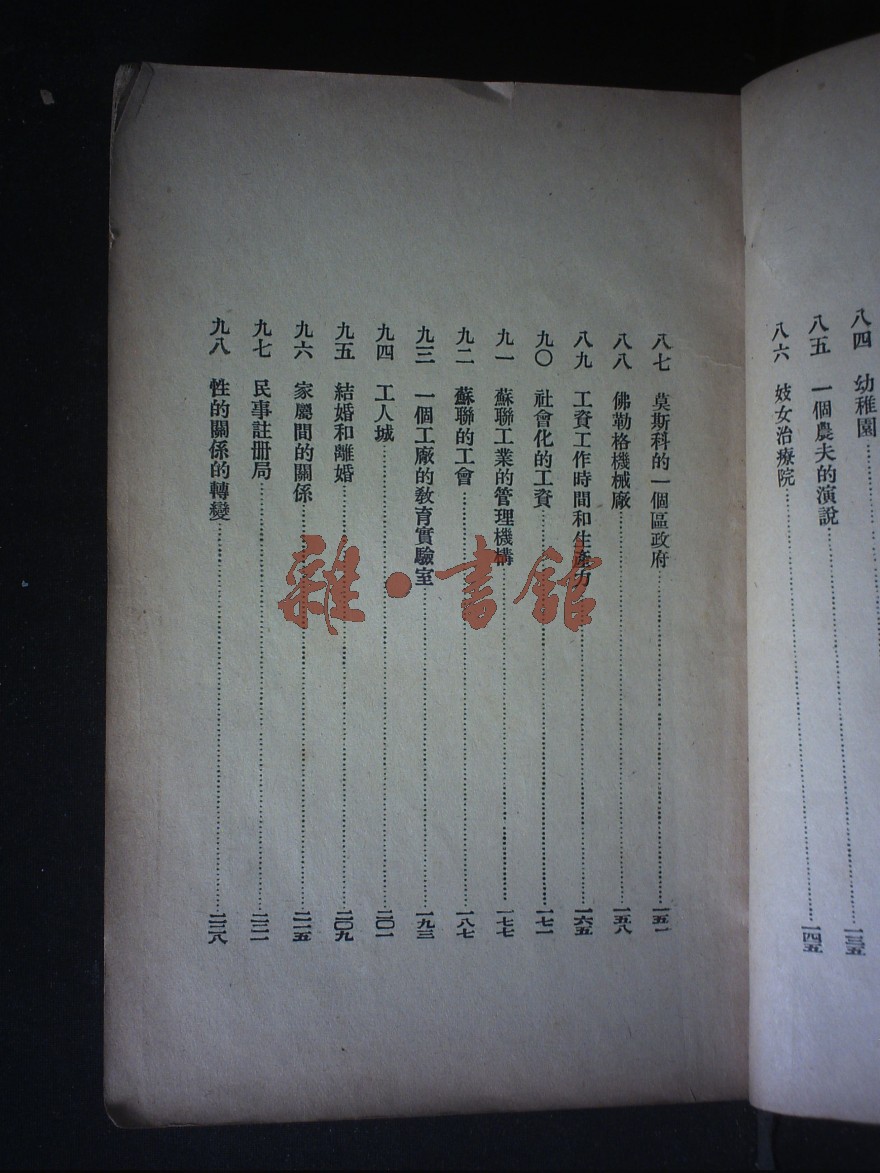 八四 幼稚園 一三五
八五 一個農夫的演說
八六 妓女治療院 一四五
八七 莫斯科的一個區政府 一五一
八八 佛勒格機械廠 一五八
八九 工資工作時間和生產力 一六五
九〇 社會化的工資 一七一
九一 蘇聯工業的管理機構 一七七
九二 蘇聯的工會 一八七
九三 一個工廠的敎育實驗室 一九三
九四 工人城 二〇一
九五 結婚和離婚 二〇九
九六 家屬間的關係 二一五
九七 民事註册局
九八 性的關係的轉變
雜·書館